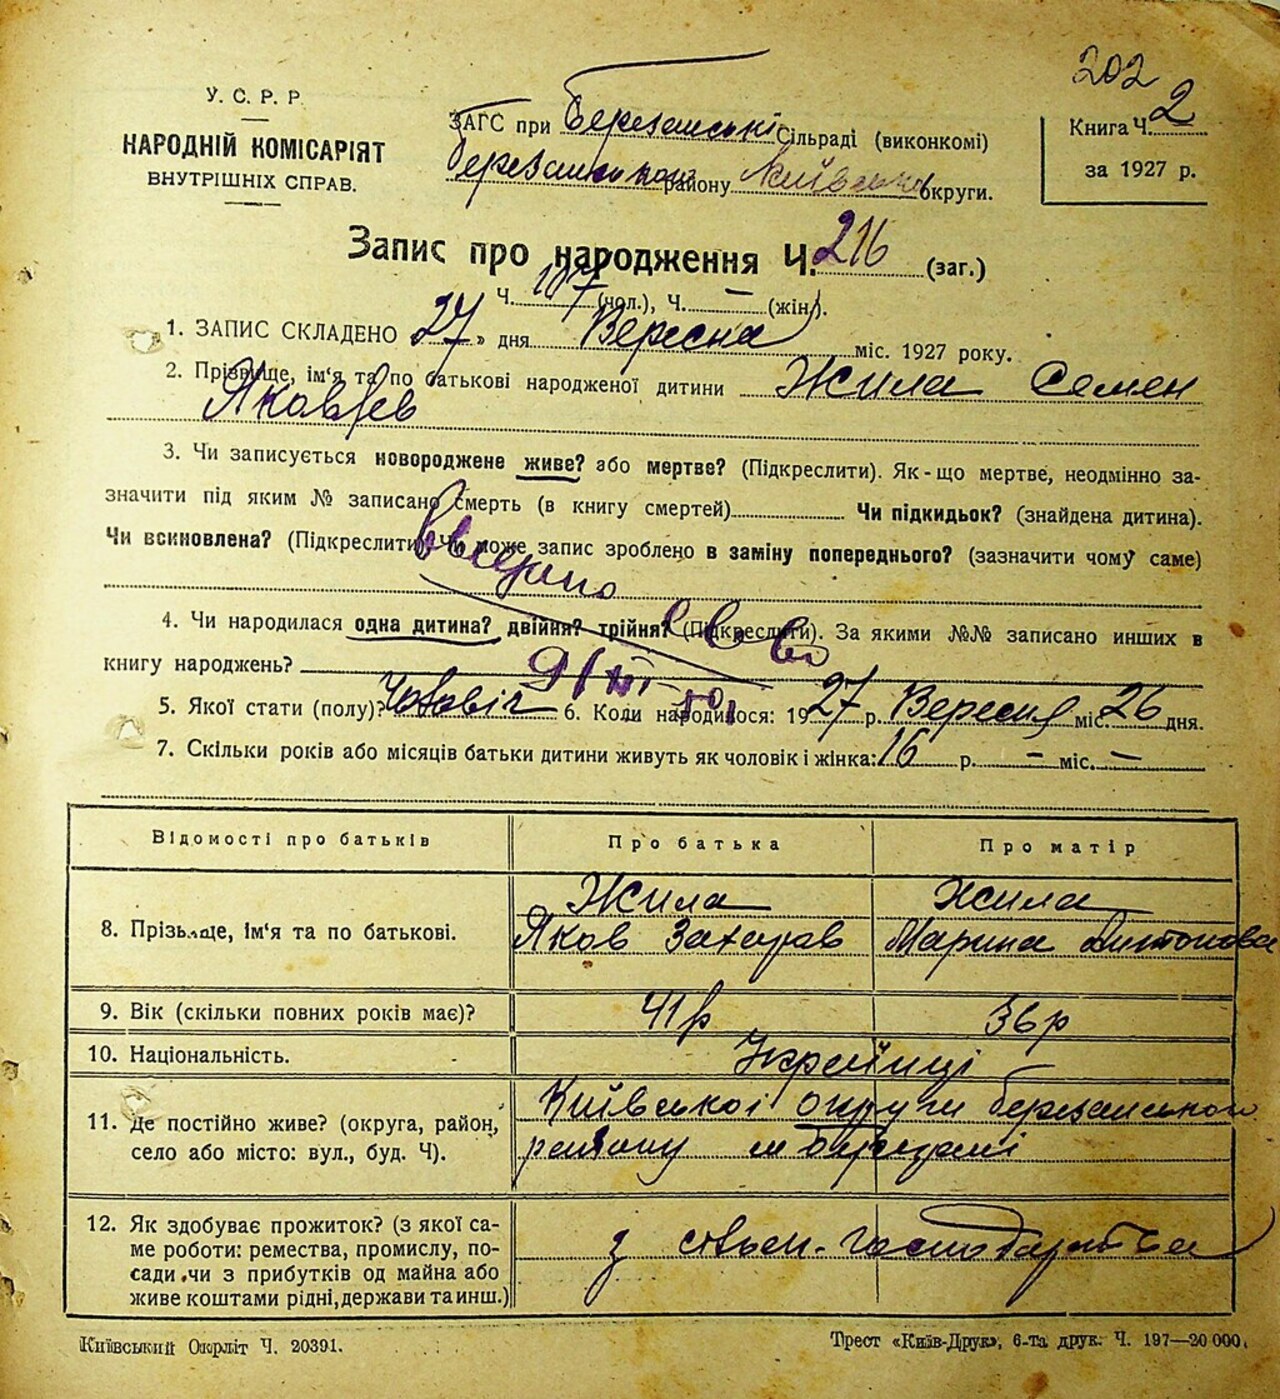 202
У. С. Р. Р.
НАРОДНІЙ КОМІСАРІЯТ
ВНУТРІШНІХ СПРАВ.
ЗАГС при Березанські Сільраді (виконкомі)
Березанського району Київсько округи.
Книга Ч. 2
за 1927 р.
Запис про народження Ч. 216 (заг.)
Ч. 107 (чол.), Ч. – (жін).
1. ЗАПИС СКЛАДЕНО 27 » дня Вересня міс. 1927 року.
2. Прізвище, ім'я та по батькові народженої дитини Жила Семен
Яковлев
3. Чи записується новороджене живе? або мертве? (Підкреслити). Як-що мертве, неодмінно за-
значити під яким № записано смерть (в книгу смертей) Чи підкидьок? (знайдена дитина).
Чи всиновлена? (Підкреслити) Чи може запис зроблено в заміну попереднього? (зазначити чому саме)
4. Чи народилася одна дитина? двійня? трійня? (Підкреслити). За якими №№ записано инших в
книгу народжень?
5. Якої стати (полу)? Чоловіч 6. Коли народилося: 1927 р. Вересня міс. 26 дня.
7. Скільки років або місяців батьки дитини живуть як чоловік і жінка: 16 р. – міс. –
Відомості про батьків Про батька Про матір
8. Прізьвище, ім'я та по батькові. Жила Жила
Яков Захаров Марина Антонова
9. Вік (скільки повних років має)? 41 р 36 р
10. Національність. Українці
11. Де постійно живе? (округа, район,
село або місто: вул., буд. Ч).
Київської округи березанського
району м Березані
12. Як здобуває прожиток? (з якої са-
ме роботи: ремества, промислу, по-
сади чи з прибутків од майна або
живе коштами рідні, держави та инш.)
з сільск-господарства
Київський Окрліт Ч. 20391.
Трест «Київ-Друк», 6-та друк. Ч. 197—20 000.